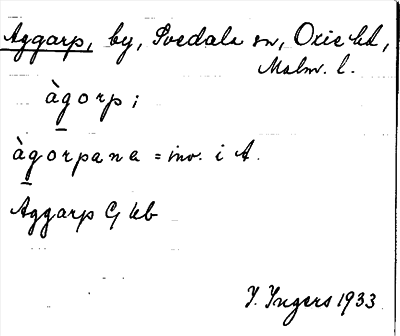 Aggarp, by, Svedala sn, Oxie hd,
Malm. l.
àgorp;
àgorpana = inv. i A.
Aggarp G kb
I. Ingers 1933